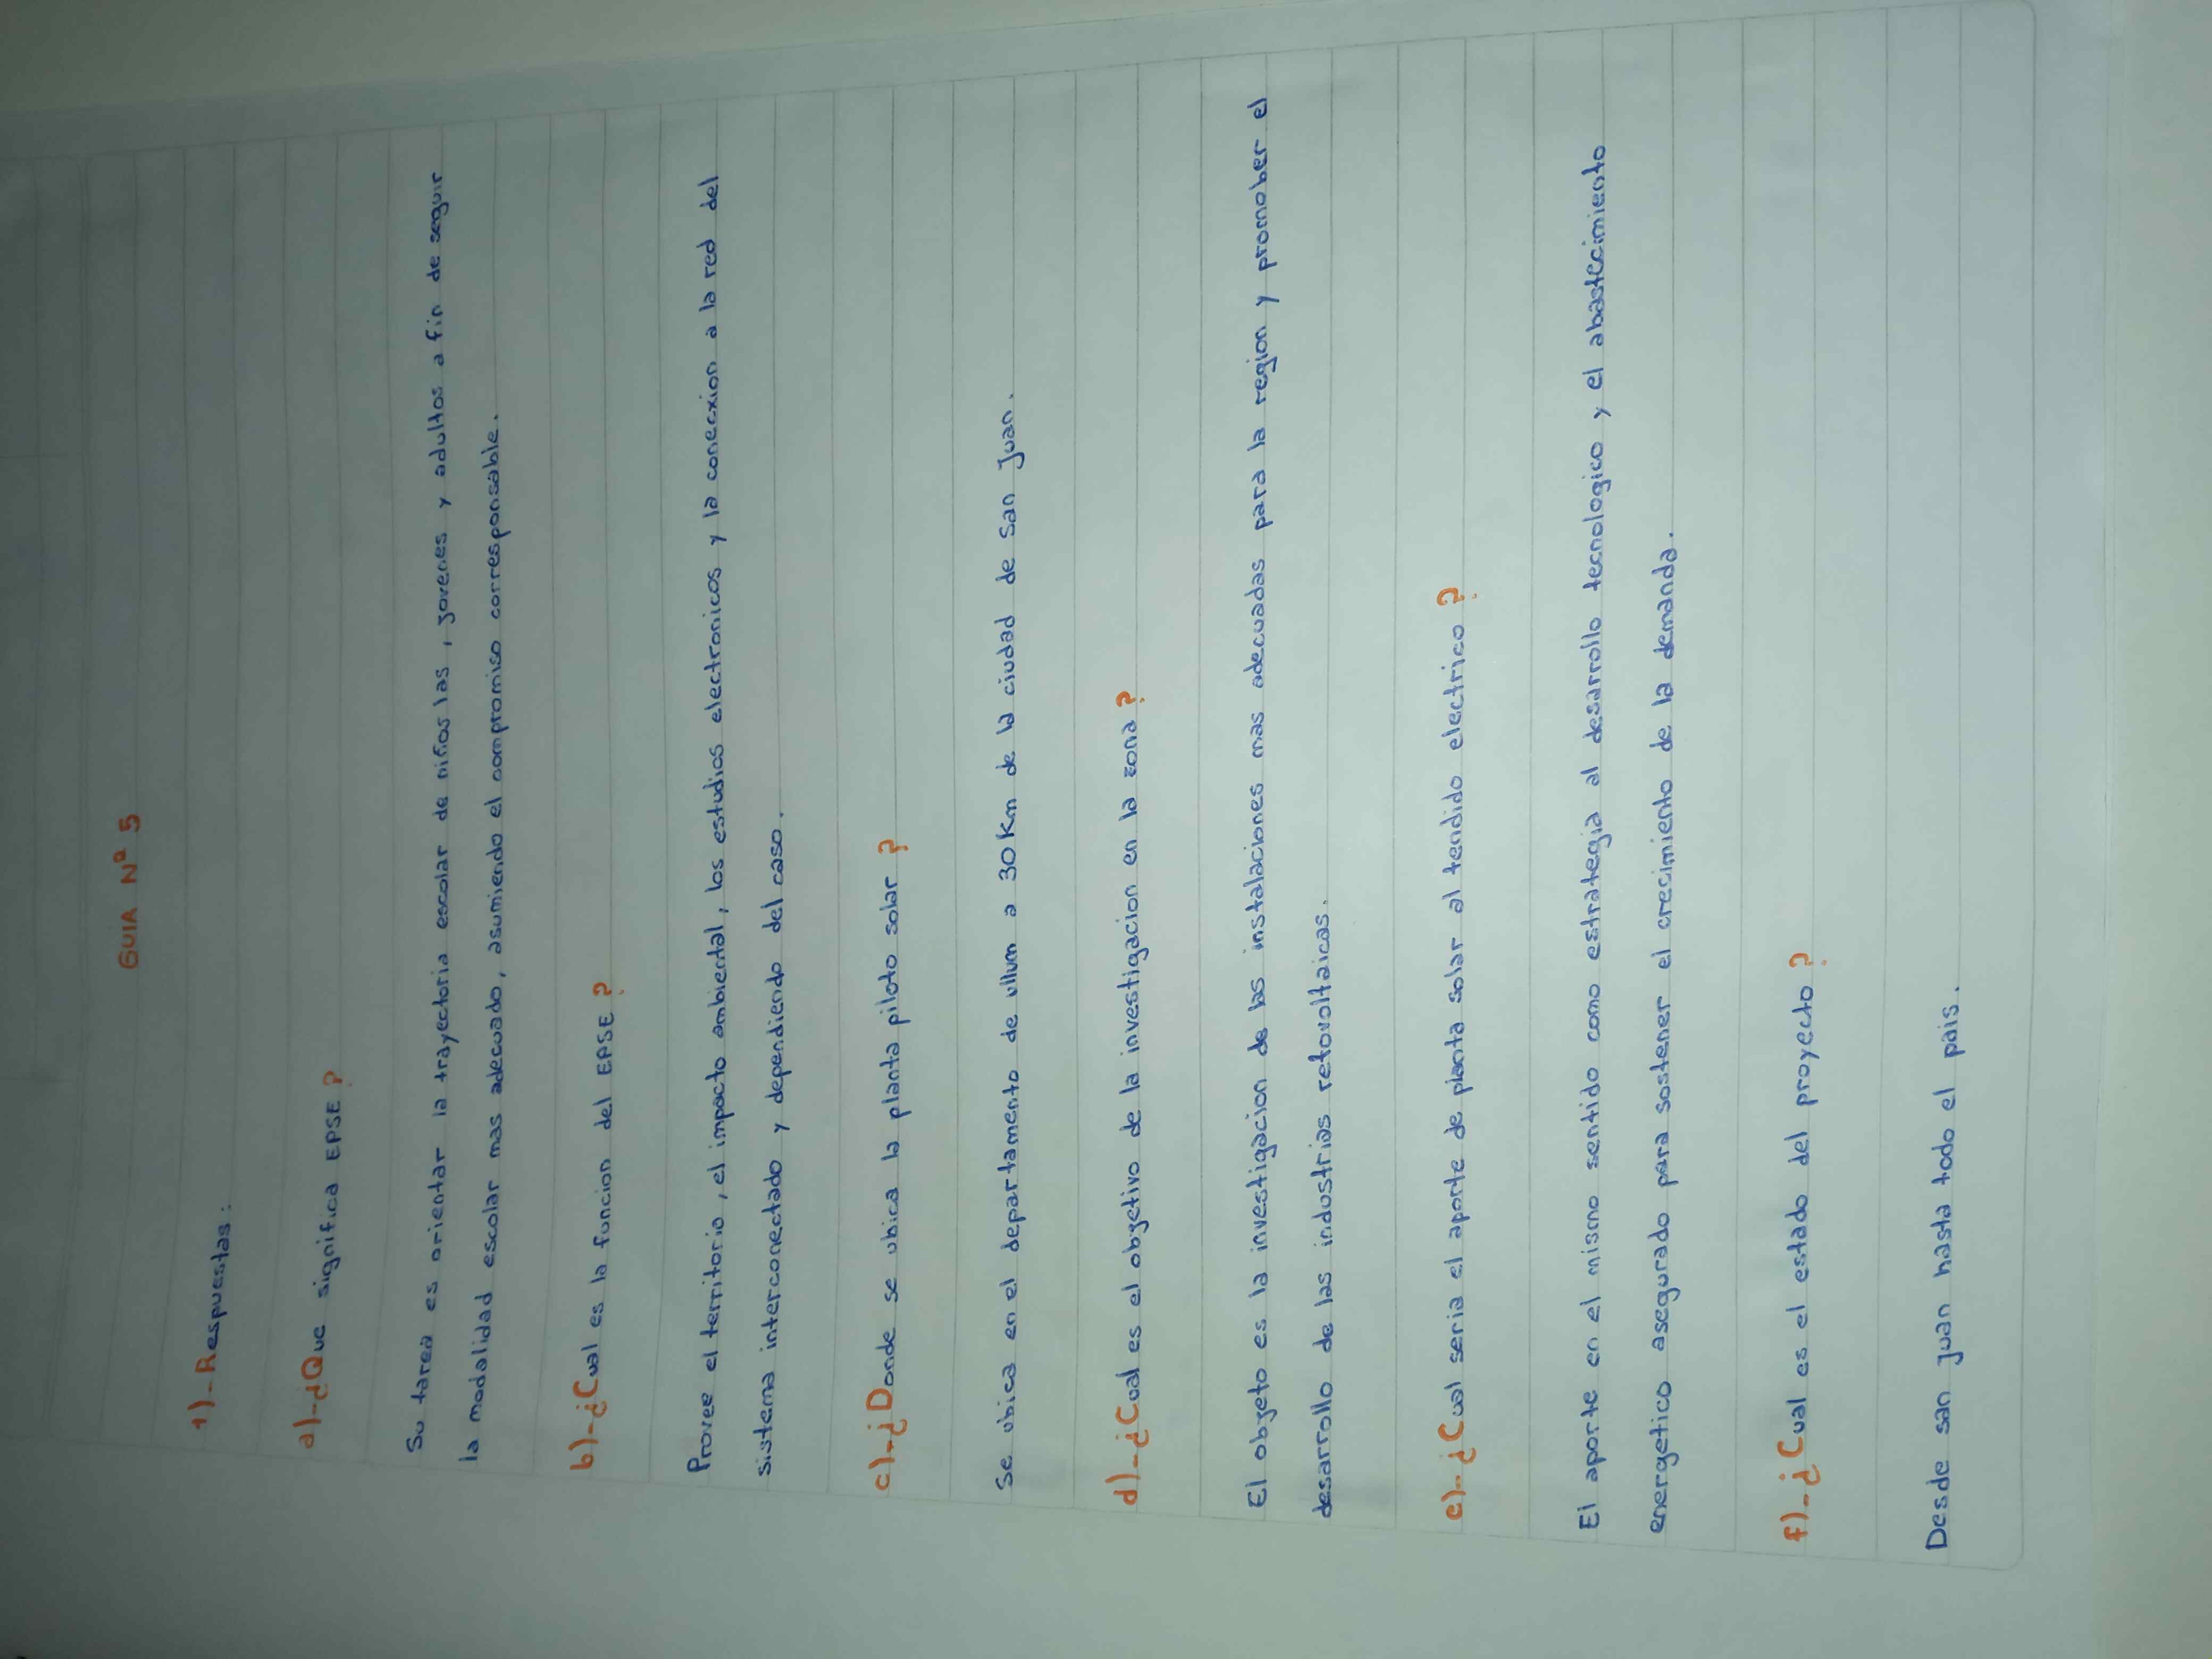 GUIA Nº 5
1)-Respuestas:
a)-¿Que significa EPSE?
Su tarea es orientar la trayectoria escolar de niños las, jovenes y adultos a fin de seguir
la modalidad escolar mas adecuado, asumiendo el compromiso corresponsable.
b)-¿Cual es la funcion del EPSE?
Provee el territorio, el impacto ambiental, los estudios electronicos y la conecxion a la red del
sistema interconectado y dependiendo del caso.
c)-¿Donde se ubica la planta piloto solar?
Se ubica en el departamento de ullum a 30 Km de la ciudad de san juan.
d)-¿Cual es el objetivo de la investigacion en la zona?
El objeto es la investigacion de las instalaciones mas adecuadas para la region y promober el
desarrollo de las industrias retovoltaicas.
e)-¿Cual seria el aporte de planta solar al tendido electrico?
El aporte en el mismo sentido como estrategia al desarrollo tecnologico y el abastecimiento
energetico asegurado para sostener el crecimiento de la demanda.
f)-¿Cual es el estado del proyecto?
Desde san juan hasta todo el pais.